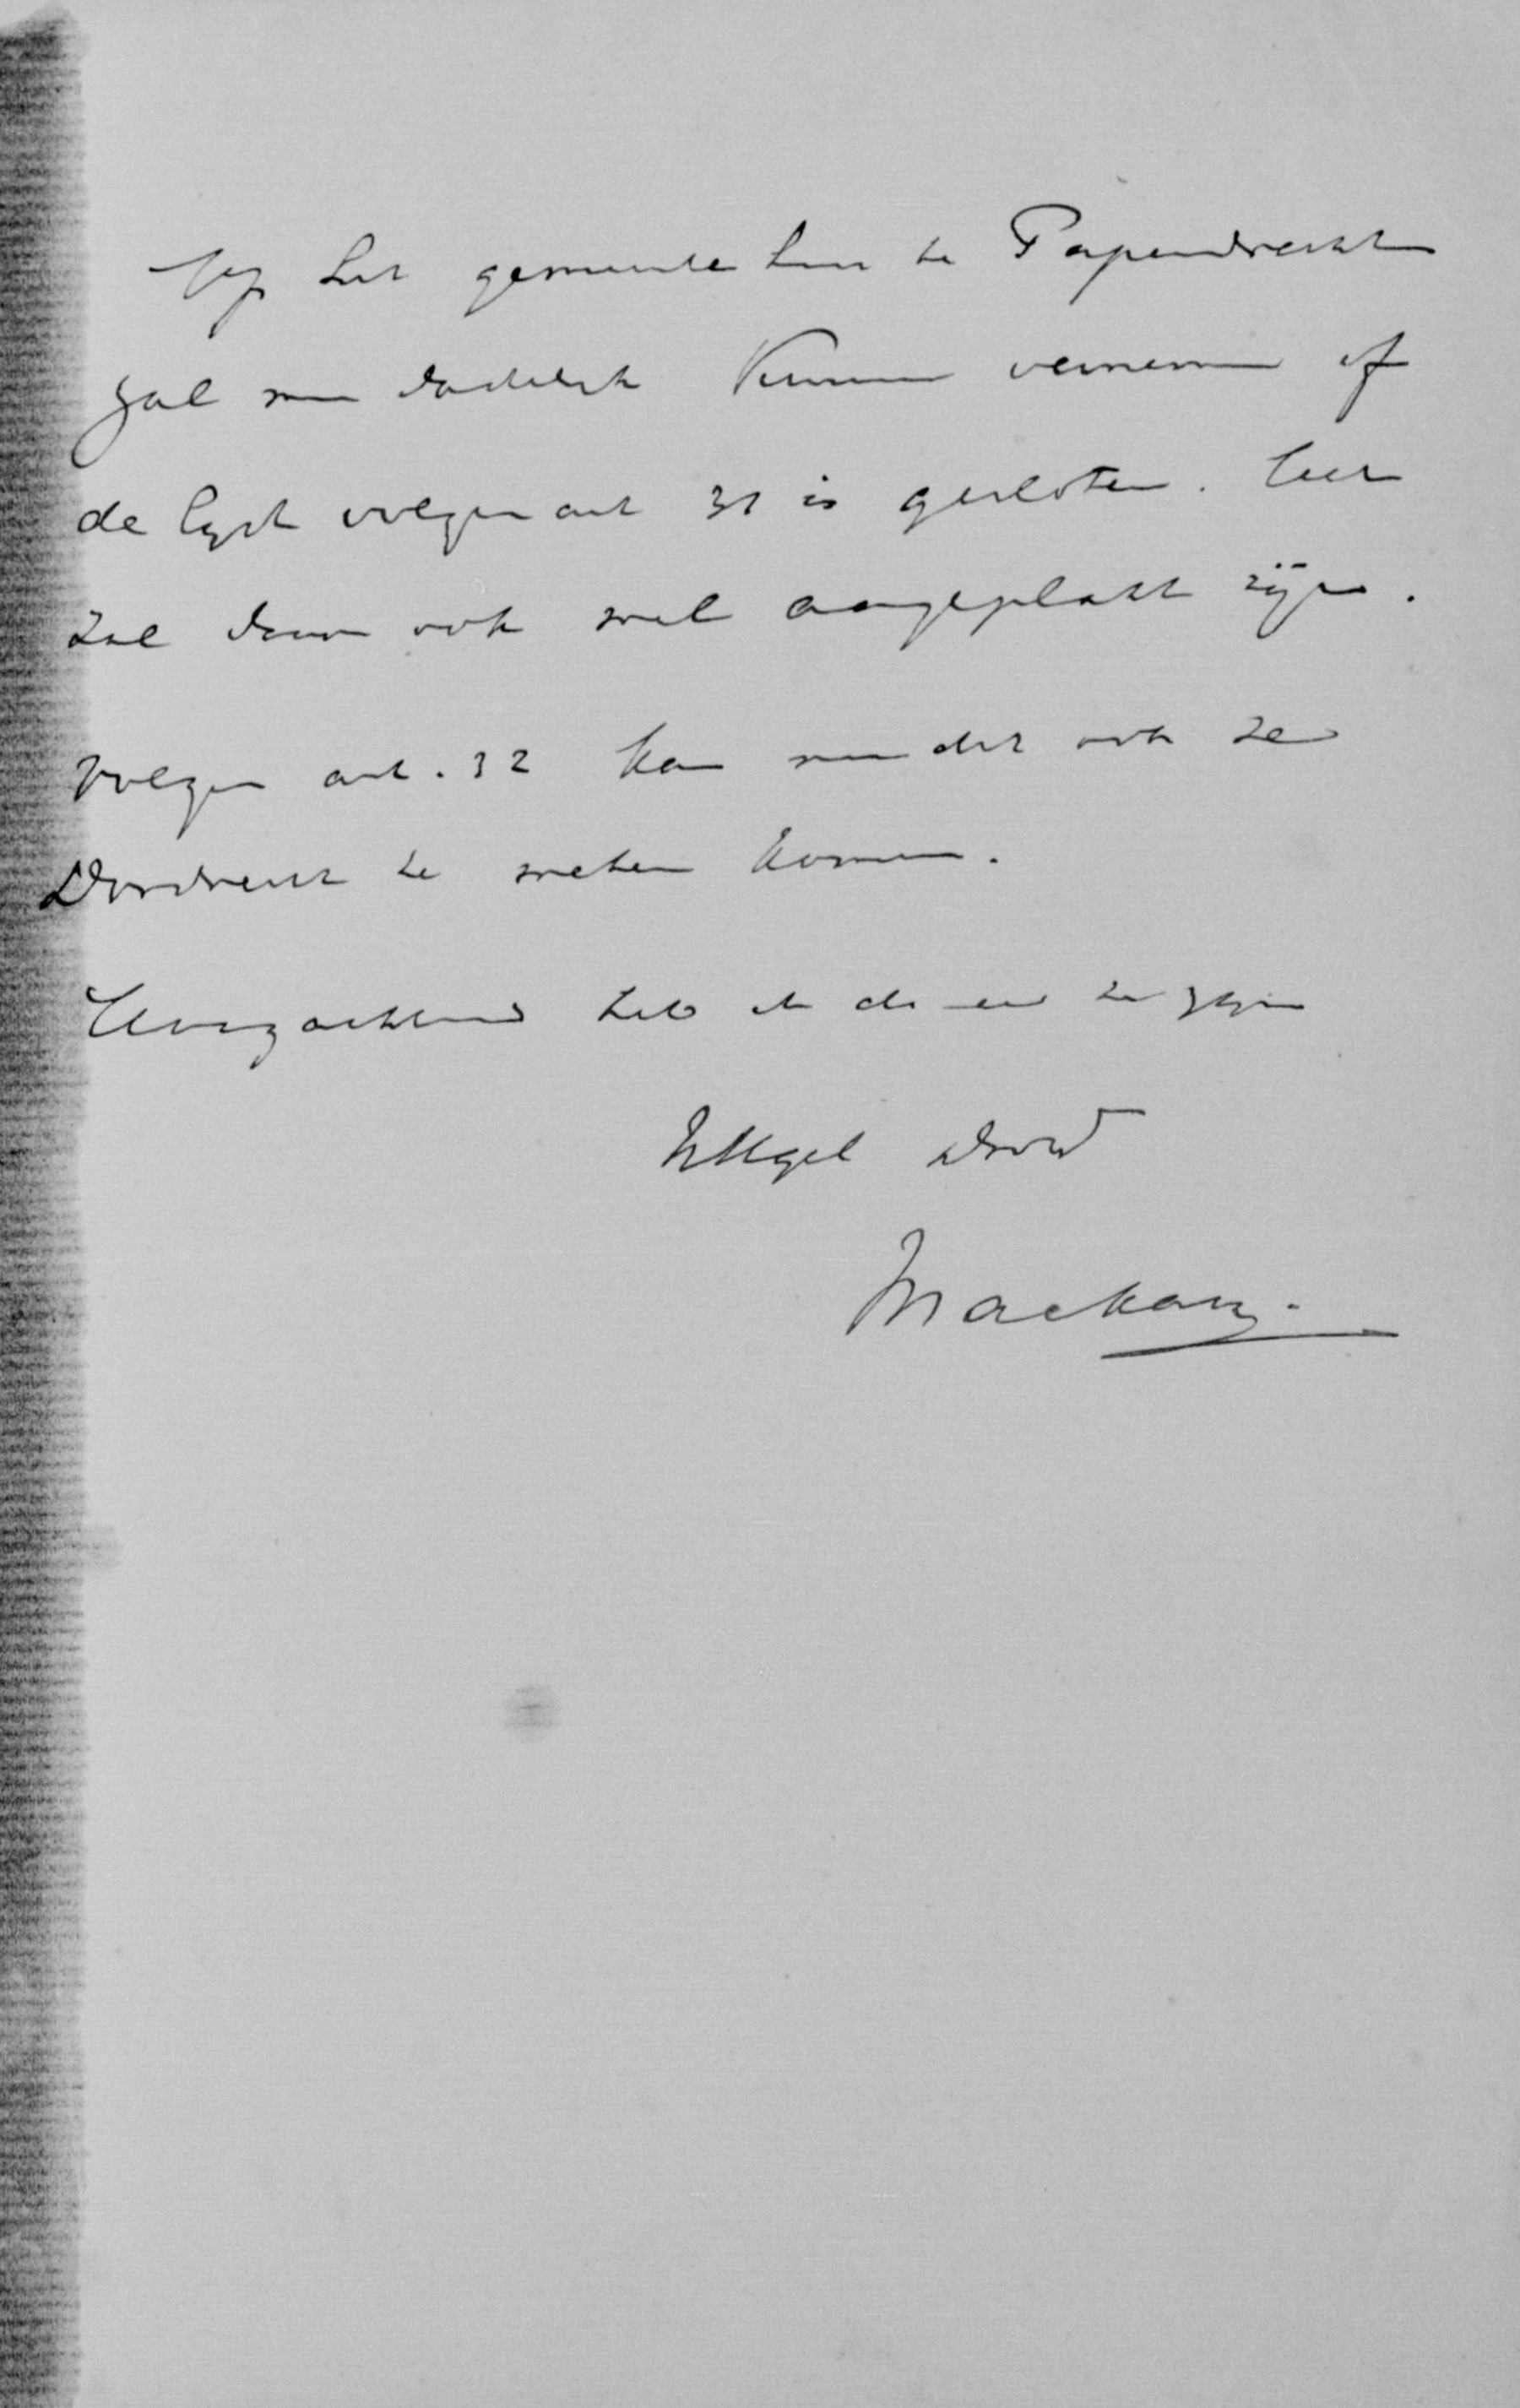 Op het gemeente huis te Papendrecht
zal men dadelijk kunnen vernemen of
de lyst volgens art 31 is gesloten.
zal daar ook wel aangeplakt zijn.
Volgens art. 32 kan men dit ook te
Dordrecht te weten komen.
Hoogachtend heb ik de eer te zijn
UEdgel Dnr
Mackay.